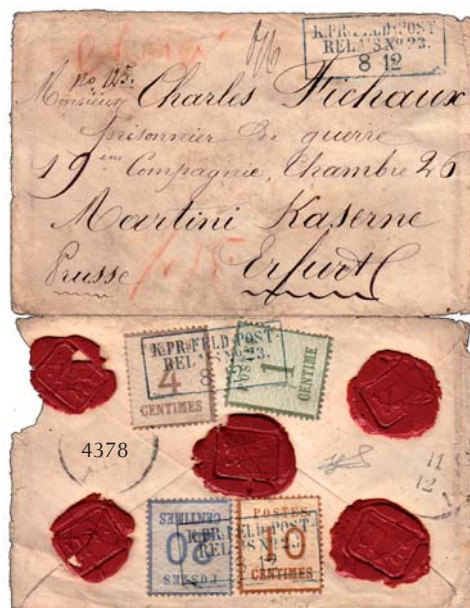 K.PR.FELD-POST
RELAIS No 23.
8 12
no 125.
Monsieur Charles Fichaux
prisonnier de guerre
19 eme Compagnie, Chambre 26
Martini Kaserne
Prusse Erfurt
K.PR.FELD-POST
RELAIS No 23.
8
4
CENTIMES
POSTES
1
CENTIME
4378
11
12
POSTES
20
CENTIMES
POSTES
10
CENTIMES
K.PR.FELD-POST
RELAIS No